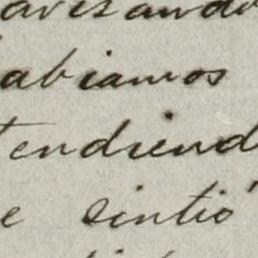 avisando
abiamos
endiend
e sintió